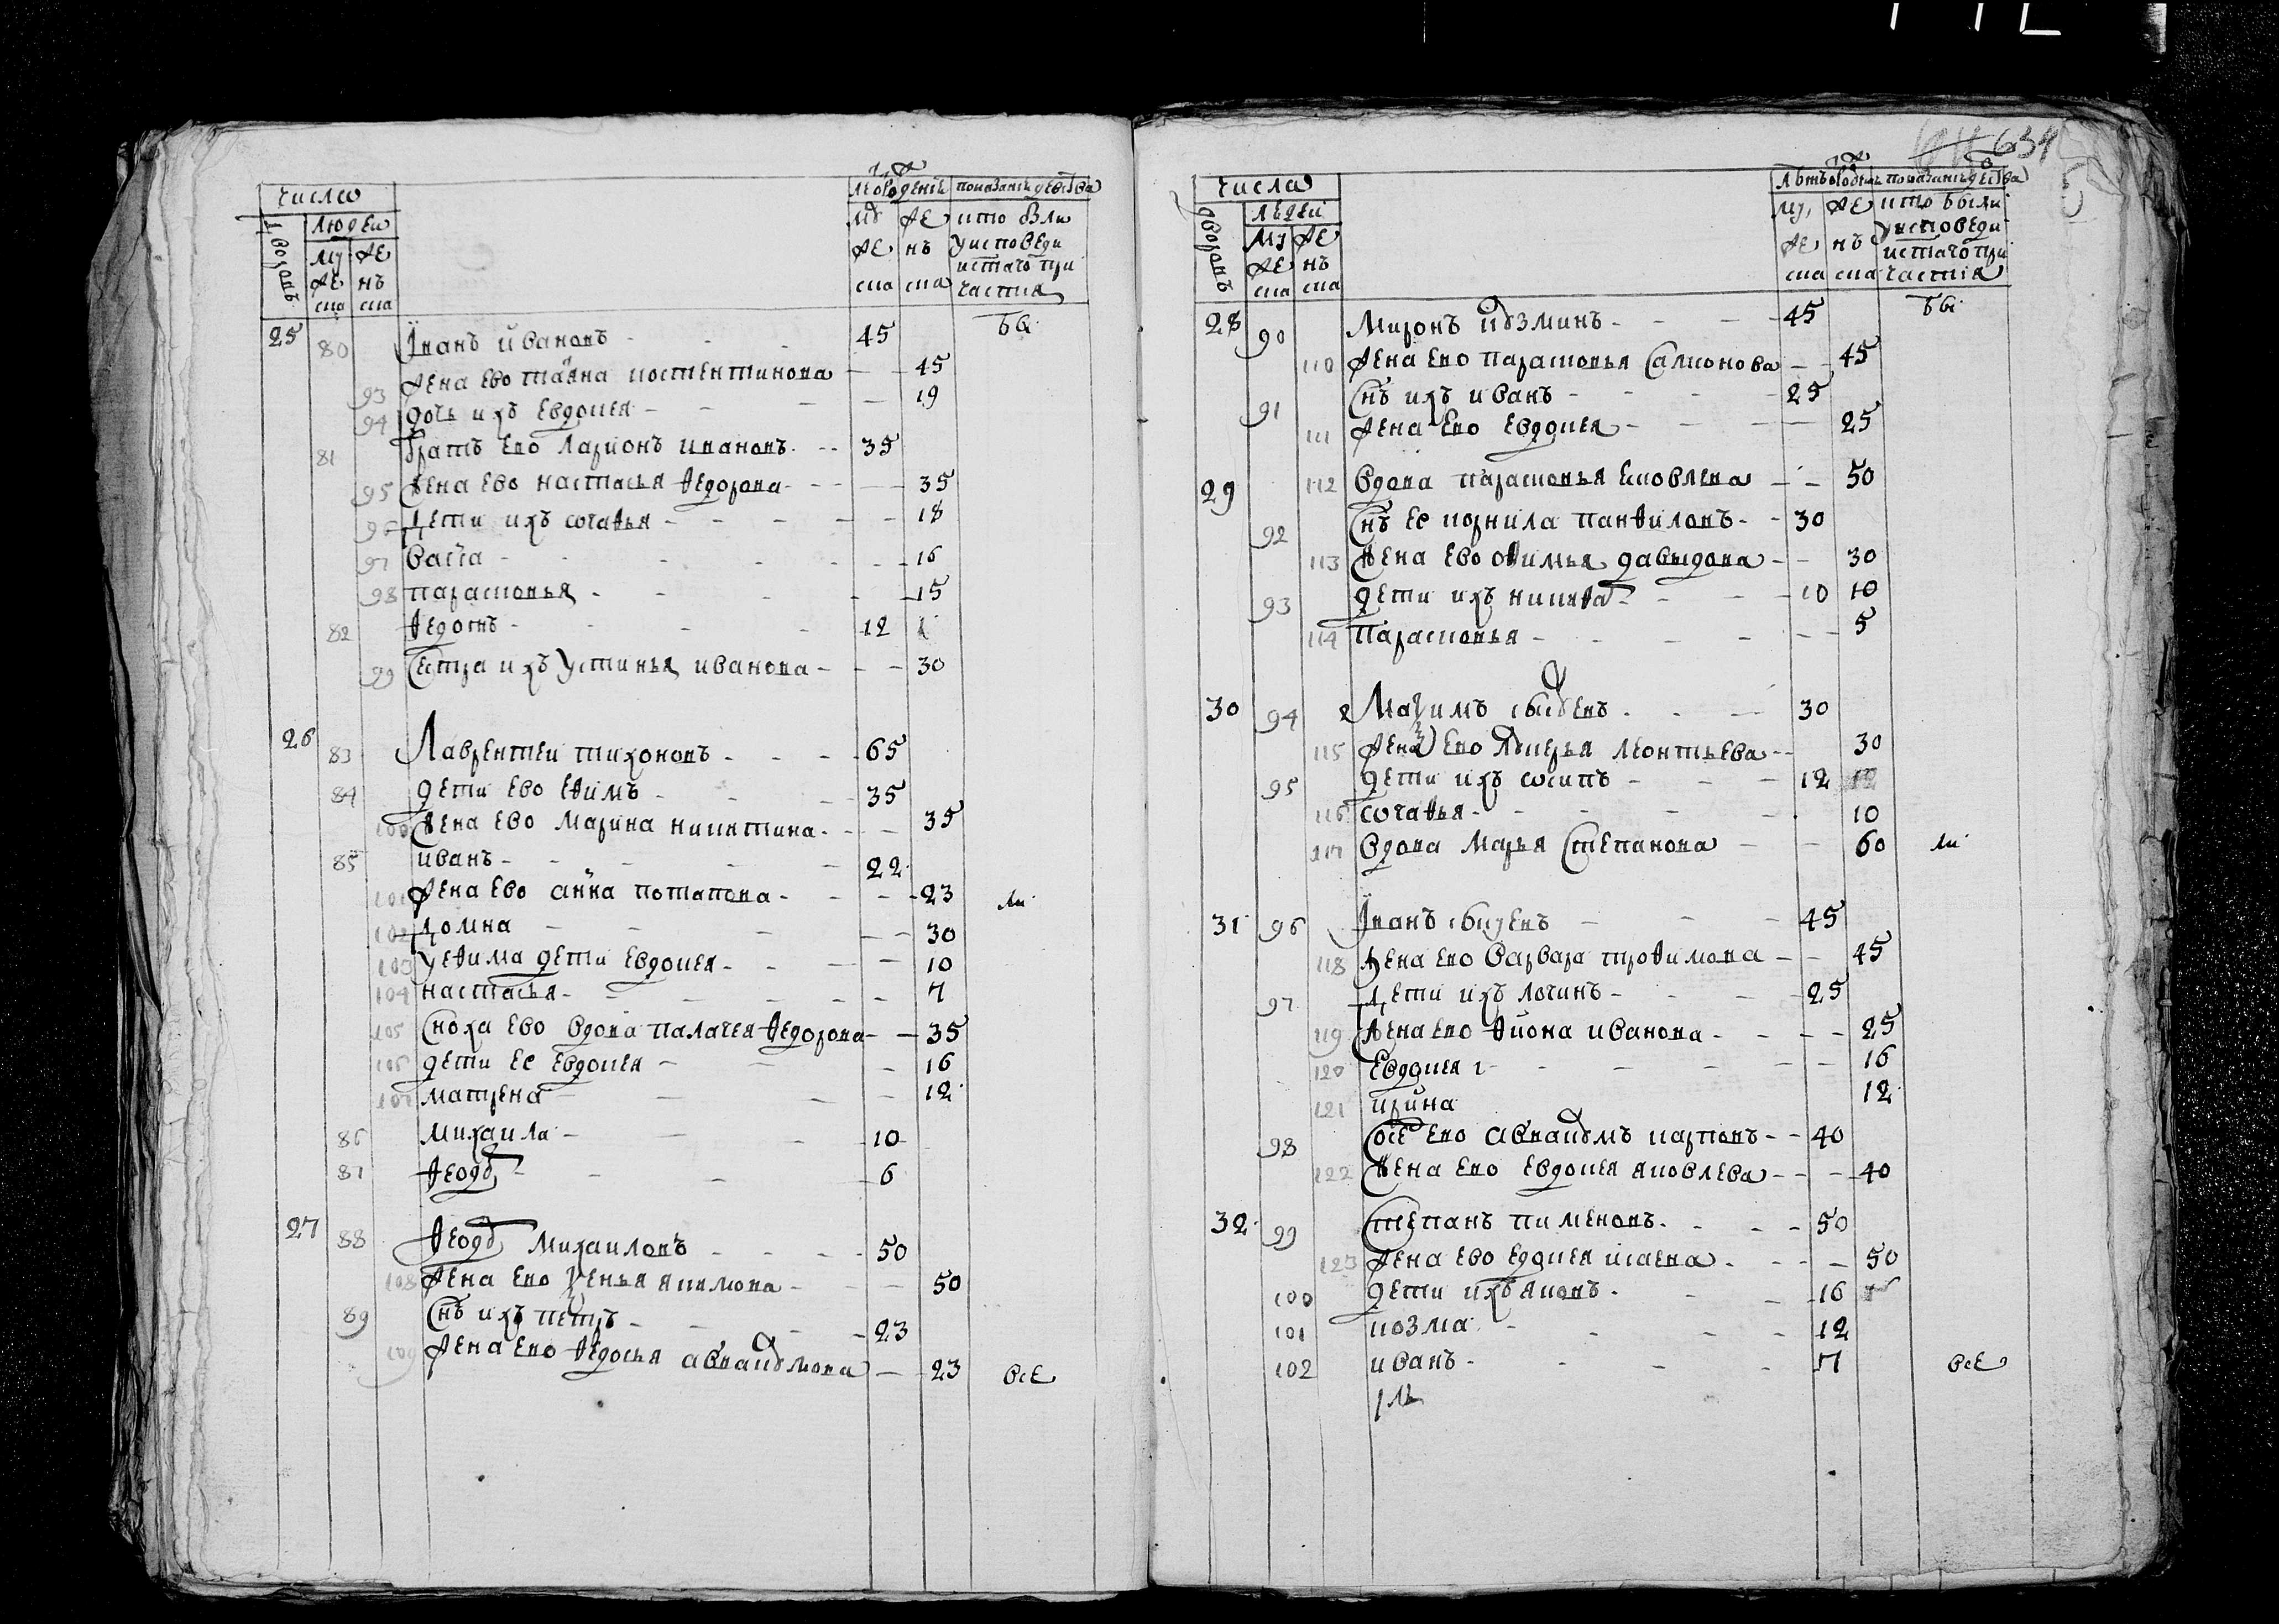 числа
дворовъ
людеи
му же ска
же нъ ска
му же ска
же нъ ска
кто были у исповеди и стаго при частия
25 80 Іванъ ивановъ - - - 45 бы
93 жена ево таяна костентинова - - 45
94 дочь ихъ евдокея - - - 19
81 братъ ево ларионъ ивановъ - - 35
95 жена ево настасья федорова - - - 35
96 дети ихъ согафья - - - - 18
97 васса - - - - 16
98 парасковья - - - - 15
82 федосъ - - - 12
99 сестра ихъ устинья иванова - - - 30
26 83 Лаврентеи тихоновъ - - - 65
84 дети ево ефимъ - - - 35
100 жена ево марина никитина - - - 35
85 иванъ - - - - 22
101 жена ево анна потапова - - - 23 ли
102 домна - - - - 30
103 у ефима дети евдокея - - - - 10
104 настасья - - - - - 7
105 сноха ево вдова палагея федорова - - 35
106 дети ее евдокея - - - 16
107 матрена - - - - 12
86 михаила - - - 10
87 федоръ - - - 6
27 88 Федоръ михаиловъ - - - 50
108 жена ево ксенья якимова - - 50
89 снъ ихъ петръ - - - 23
109 жена ево федосья авакумова - - 23 все
634
числа
дворовъ
людеи
му же ска
же нъ ска
му, же ска
же нъ ска
кто были у исповеди и стаго при частия
28 90 Миронъ кузминъ - - - 45 бы
110 жена ево парасковья салионова - - 45
91 снъ ихъ иванъ - - - 25
111 жена ево евдокея - - - - 25
29 112 вдова парасковья яковлева - - 50
92 снъ ее корнила панфиловъ - - 30
113 жена ево офимья давыдова - - 30
93 дети ихъ никифоръ - - - 10 10
114 парасковья - - - - - - 5
30 94 Маѯимъ - - - 30
115 жена ево лукерья леонтьева - - 30
95 дети ихъ осипъ - - - 12
116 согафья - - - - - 10
117 вдова марья степанова - - 60 ли
31 96 Іванъ - - - 45
118 жена ево варвара трофимова - - 45
97 дети ихъ логинъ - - - 25
119 жена ево фиона иванова - - - - 25
120 евдокея - - - - - 16
121 ирина 12
98 ево авакумъ карповъ - - 40
122 жена ево евдокея яковлева - - - 40
32 99 Степанъ пименовъ - - - 50
123 жена ево едокея исаева - - - - 50
100 дети ихъ яковъ - - - 16
101 козма - - - - 12
102 иванъ - - - - 7 все